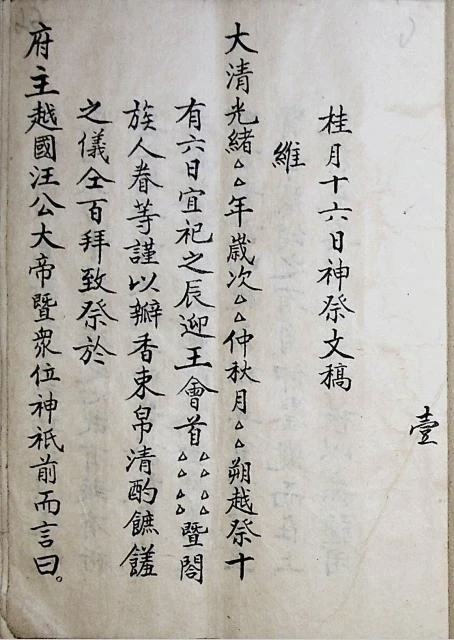 壹
桂月十六日神祭文稿
維
大清光緒△△年歲次△△仲秋月△△朔越祭十
有六日宜祀之辰迎王會首△△△△△△△△暨閤
族人眷等謹以瓣香束帛清酌饈
之儀仝百拜致祭於
府主越國汪公大帝暨衆位神祇前而言曰。